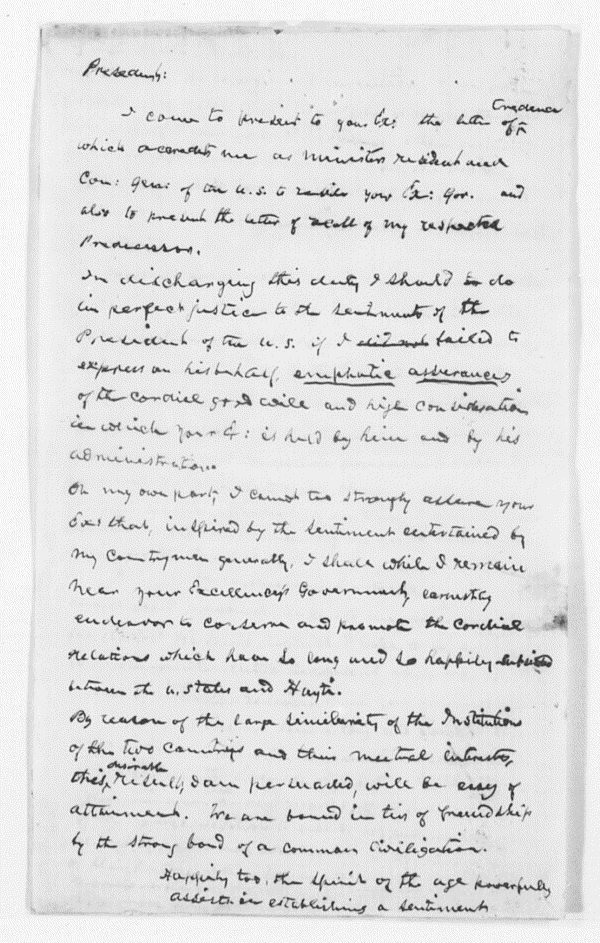 President:
I come to present to your Ex: the letter of Credence
which accredits me as Minister resident and
Con: Gen: of the U.S. to your Ex: Gov. and
also to present the letter of recall of my respected
Predecessor.
In discharging this duty I should do
imperfect justice to the sentiments of the
President of the U.S. if I did not failed to
express on his behalf, emphatic assurances
of the cordial good will and high consideration
in which your Ex: is held by him and by his
administration.
On my own part, I cannot too strongly assure your
Ex: that, inspired by the sentiment entertained by
my Countrymen generally, I shall while I remain
near your Excellency's Government, earnestly
endeavor to conserve and promote the cordial
relations which have so long and so happily subsisted
between the U. States and Hayti.
By reason of the large similarity of the Institutions
of the two Countries and their mutual interests,
this, desirable result, I am persuaded, will be easy of
attainment. We are bound in ties of friendship
by the strong bond of a common civilization.
Happily too, the spirit of the age powerfully
assists in establishing a sentiment